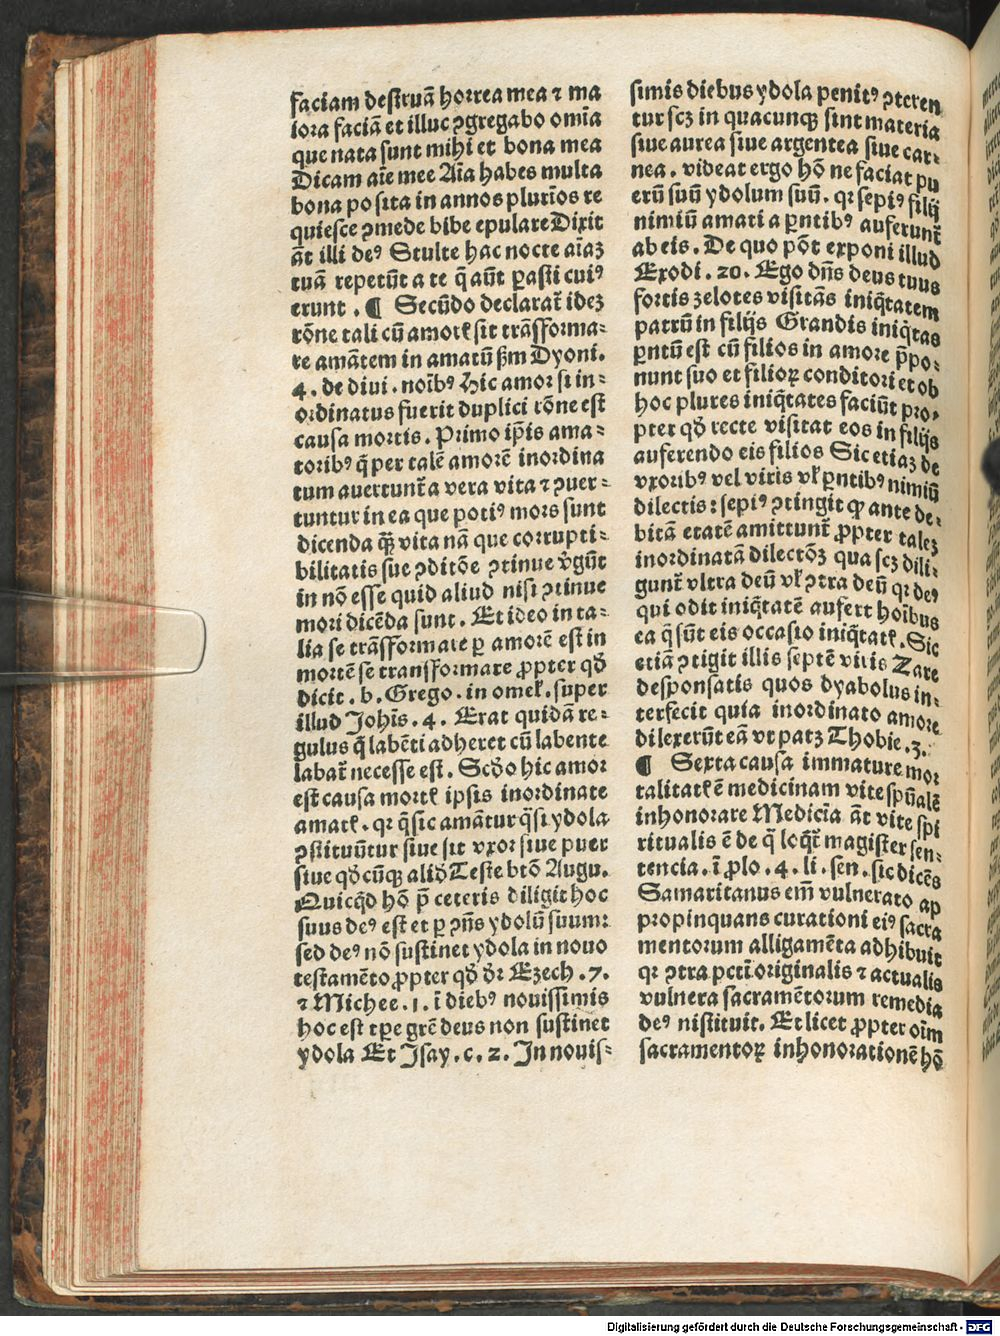 faciam destruā horrea mea ⁊ ma
iora faciā et illuc ꝯgregabo om̄ia
que nata sunt mihi et bona mea
Dicam aīe mee Aīa habes multa
bona posita in annos plurīos re
quiesce ꝯmede bibe epulare Dixit
āt illi deꝰ Stulte hac nocte aīaꝫ
tuā repetūt a te q̄ aūt parasti cuiꝰ
erunt . ¶ Secūdo declarat̄ ideꝫ
rōne tali cū amorꝭ sit trāsforma⸗
re amātem in amatū ẜm Dyoni.
4. de diui. noībꝰ Hic amor si in⸗
ordinatus fuerit duplici rōne est
causa mortis. Primo ip̄is ama⸗
toribꝰ q̄ per talē amorē inordina
tum auertunt̄ a vera vita ⁊ ꝯuer⸗
tuntur in ea que potiꝰ mors sunt
dicenda q̄ꝫ vita nā que corrupti⸗
bilitatis sue ꝯditōe ꝯtinue v̄gūt
in nō esse quid aliud nisi ꝯtinue
mori dicēda sunt. Et ideo in ta⸗
lia se trāsformare ꝑ amorē est in
mortē se transformare ꝓpter qđ
dicit. b. Grego. in omeł. super
illud Johīs. 4. Erat quidā re⸗
gulus q̄ labēti adheret cū labente
labat̄ necesse est. Scđo hic amor
est causa mortꝭ ipsis inordinate
amatꝭ. qr q̄ sic amātur q̄si ydola
ꝯstituūtur siue sit vxor siue puer
siue qđcūqꝫ aliđ Teste btō Augu.
Quicqđ hō p̄ ceteris diligit hoc
suus deꝰ est et ꝑ ꝯn̄s ydolū suum:
sed deꝰ nō sustinet ydola in nouo
testamēto ꝓpter qđ dr̄ Ezech. 7.
⁊ Michee. 1. ī diebꝰ nouissimis
hoc est tꝑe grē deus non sustinet
ydola Et Isay. c. 2. In nouis⸗
simis diebus ydola penitꝰ ꝯteren
tur scꝫ in quacunqꝫ sint materia
siue aurea siue argentea siue car⸗
nea. videat ergo hō ne faciat pu
erū suū ydolum suū. qr sepiꝰ filij
nimiū amati a ꝑntibꝰ auferunt̄
ab eis. De quo pōt exponi illud
Exodi. 20. Ego dn̄s deus tuus
fortis zelotes visitās iniq̄tatem
patrū in filijs Grandis iniq̄tas
ꝑntū est cū filios in amore p̄po⸗
nunt suo et filioꝝ conditori et ob
hoc plures iniq̄tates faciūt pro⸗
pter qđ recte visitat eos in filijs
auferendo eis filios Sic etiaꝫ de
vxoribꝰ vel viris vł ꝑntibꝰ nimiū
dilectis: sepiꝰ ꝯtingit ꝙ ante de⸗
bitā etatē amittunt̄ ꝓpter taleꝫ
inordinatā dilectōꝫ qua scꝫ dili⸗
gunt̄ vltra deū vł ꝯtra deū qr deꝰ
qui odit iniq̄tatē aufert hoībus
ea q̄ sūt eis occasio iniq̄tatꝭ. Sic
etiā ꝯtigit illis septē viris Zare
desponsatis quos dyabolus in⸗
terfecit quia inordinato amore
dilexerūt eā vt patꝫ Thobie. 3.
¶ Sexta causa immature mor
talitatꝭ ē medicinam vite spūalē
inhonorare Medicīa āt vite spi
ritualis ē de q̄ loqt̄ magister sen⸗
tencia. ī ꝓlo. 4. li. sen. sic dicēs
Samaritanus em̄ vulnerato ap
propinquans curationi eiꝰ sacra
mentorum alligamēta adhibuit
qr ꝯtra pctī originalis ⁊ actualis
vulnera sacramētorum remedia
deꝰ nistituit. Et licet ꝓpter oīm
sacramentoꝝ inhonorationē hō
Digitalisierung gefördert durch die Deutsche Forschungsgemeinschaft - DFG